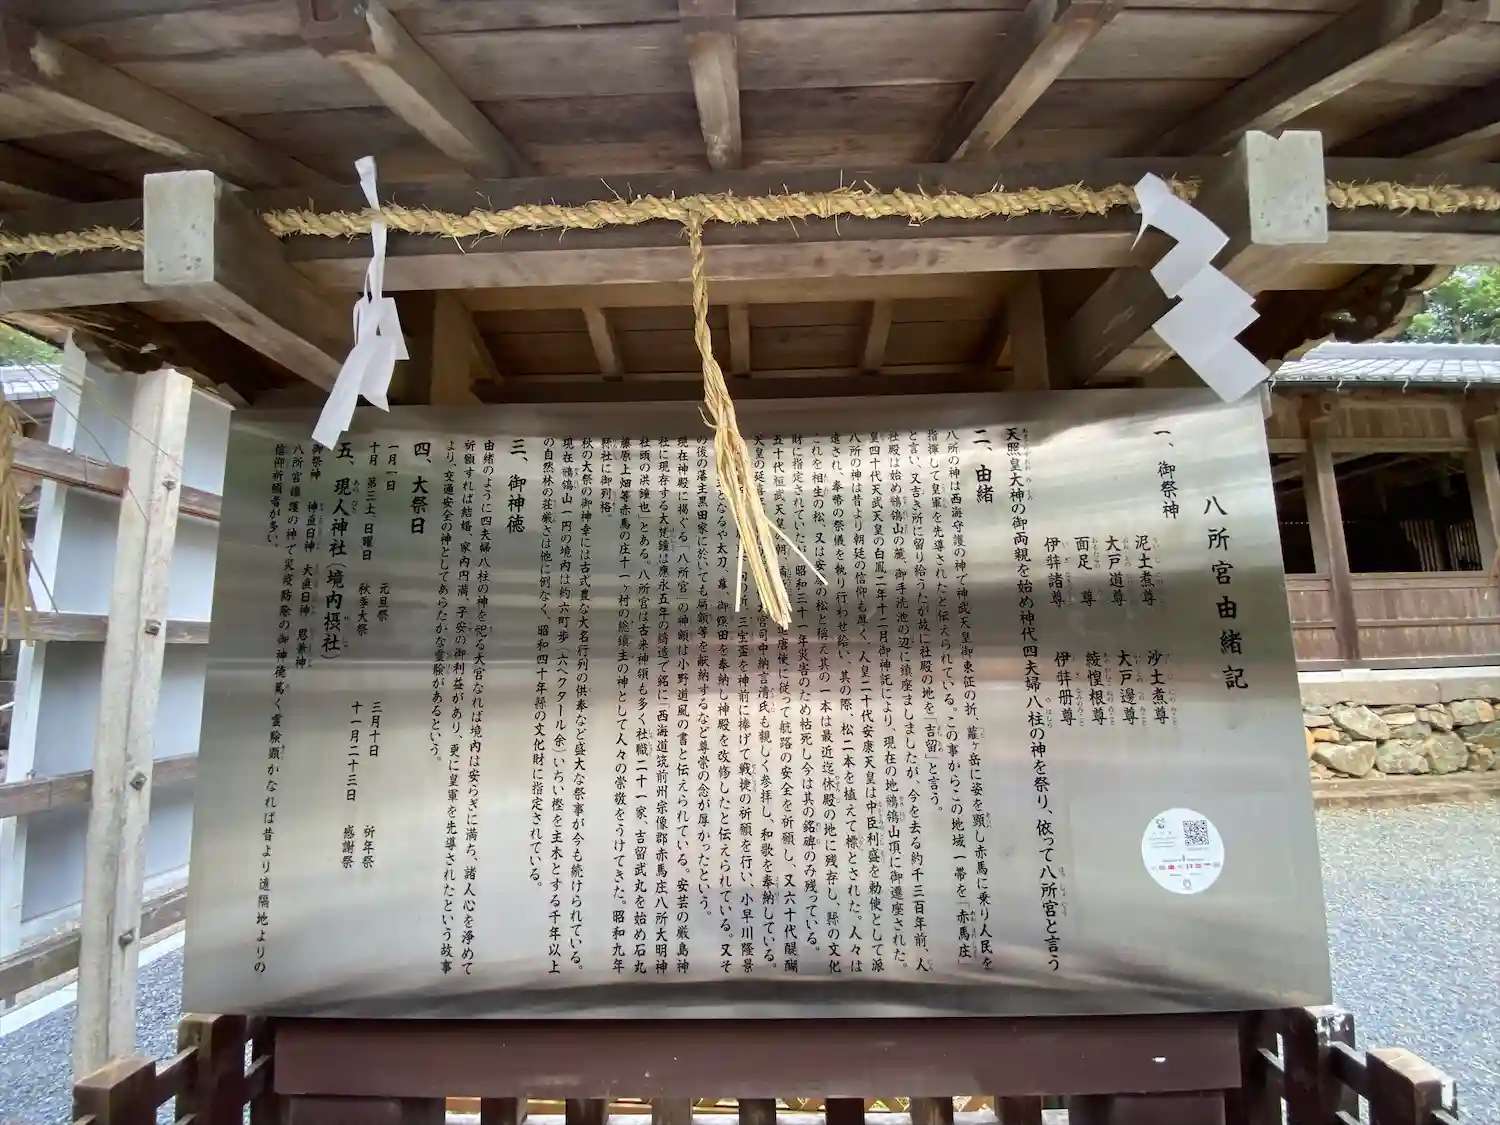 八所宮由緒記
一、御祭神
泥土煮尊 沙土煮尊
大戸道尊 大戸邊尊
面足尊 綾惶根尊
伊弉諸尊 伊弉册尊
天照皇大神の御両親を始め神代四夫婦八柱の神を祭り、依って八所宮と言う
二、由緒
八所の神は西海守護の神で神武天皇御東征の折、蘿ヶ岳に姿を顕し赤馬に乗り人民を
指揮して皇軍を先導されたと伝えられている。この事からこの地域一帯を「赤馬庄」
と言い、又吉き所に留り給うたが故に社殿の地を「吉留」と言う。
社殿は始め鵗鴒山の麓、御手洗池の辺に鎮座ましましたが、今を去る約千三百年前、人
皇四十代天武天皇の白鳳二年十二月御神託により、現在の地鵗鴒山頂に御遷座された。
八所の神は昔より朝廷の信仰も厚く、人皇二十代安康天皇は中臣利盛を勅使として派
遣され、奉幣の祭儀を執り行わせ給い、其の際、松二本を植えて標とされた。人々は
これを相生の松、又は安の松と稱え其の一本は最近迄休殿の地に残存し、縣の文化
財に指定されていたが、昭和三十一年災害のため枯死し今は其の銘碑のみ残っている。
五十代桓武天皇の朝、唐使に従って航路の安全を祈願し、又六十代醍醐
天皇の延喜 大宮司中納言清氏も親しく参拝し、和歌を奉納している。
の祈、三宝盃を神前に捧げて戦捷の祈願を行い、小早川隆景
となるや太刀、幕、御供田を奉納し神殿を改修したと伝えられている。又そ
の後の藩主黒田家に於いても扁額等を献納するなど尊崇の念が厚かったという。
現在神殿に掲ぐる「八所宮」の神額は小野道風の書と伝えられている。安芸の厳島神
社に現存する大梵鐘は應永五年の鋳造で銘に「西海道筑前州宗像郡赤馬庄八所大明神
社頭の洪鐘也」とある。八所宮は古来神領も多く社職二十一家、吉留武丸を始め石丸
藤原上畑等赤馬の庄十一ヶ村の総鎮主の神として人々の崇敬をうけてきた。昭和九年
縣社に御列格。
秋の大祭の御神幸には古式豊な大名行列の供奉など盛大な祭事が今も続けられている。
現在鵗鴒山一円の境内は約六町歩(六ヘクタール余)いちい樫を主木とする千年以上
の自然林の荘厳さは他に例なく、昭和四十年縣の文化財に指定されている。
三、御神徳
由緒のように四夫婦八柱の神を祀る大宮なれば境内は安らぎに満ち、諸人心を浄めて
祈願すれば結婚、家内円満、子安の御利益があり、更に皇軍を先導されたという故事
より、交通安全の神としてあらたかな霊験があるという。
四、大祭日
一月一日 元旦祭 三月十日 祈年祭
十月 第三土、日曜日 秋季大祭 十一月二十三日 感謝祭
五、現人神社(境内摂社)
御祭神 神直日神 大直日神 思兼神
八所宮護護の神で災疫防除の御神徳篤く霊験顕かなれば昔より遠隔地よりの
信仰祈願者が多い。